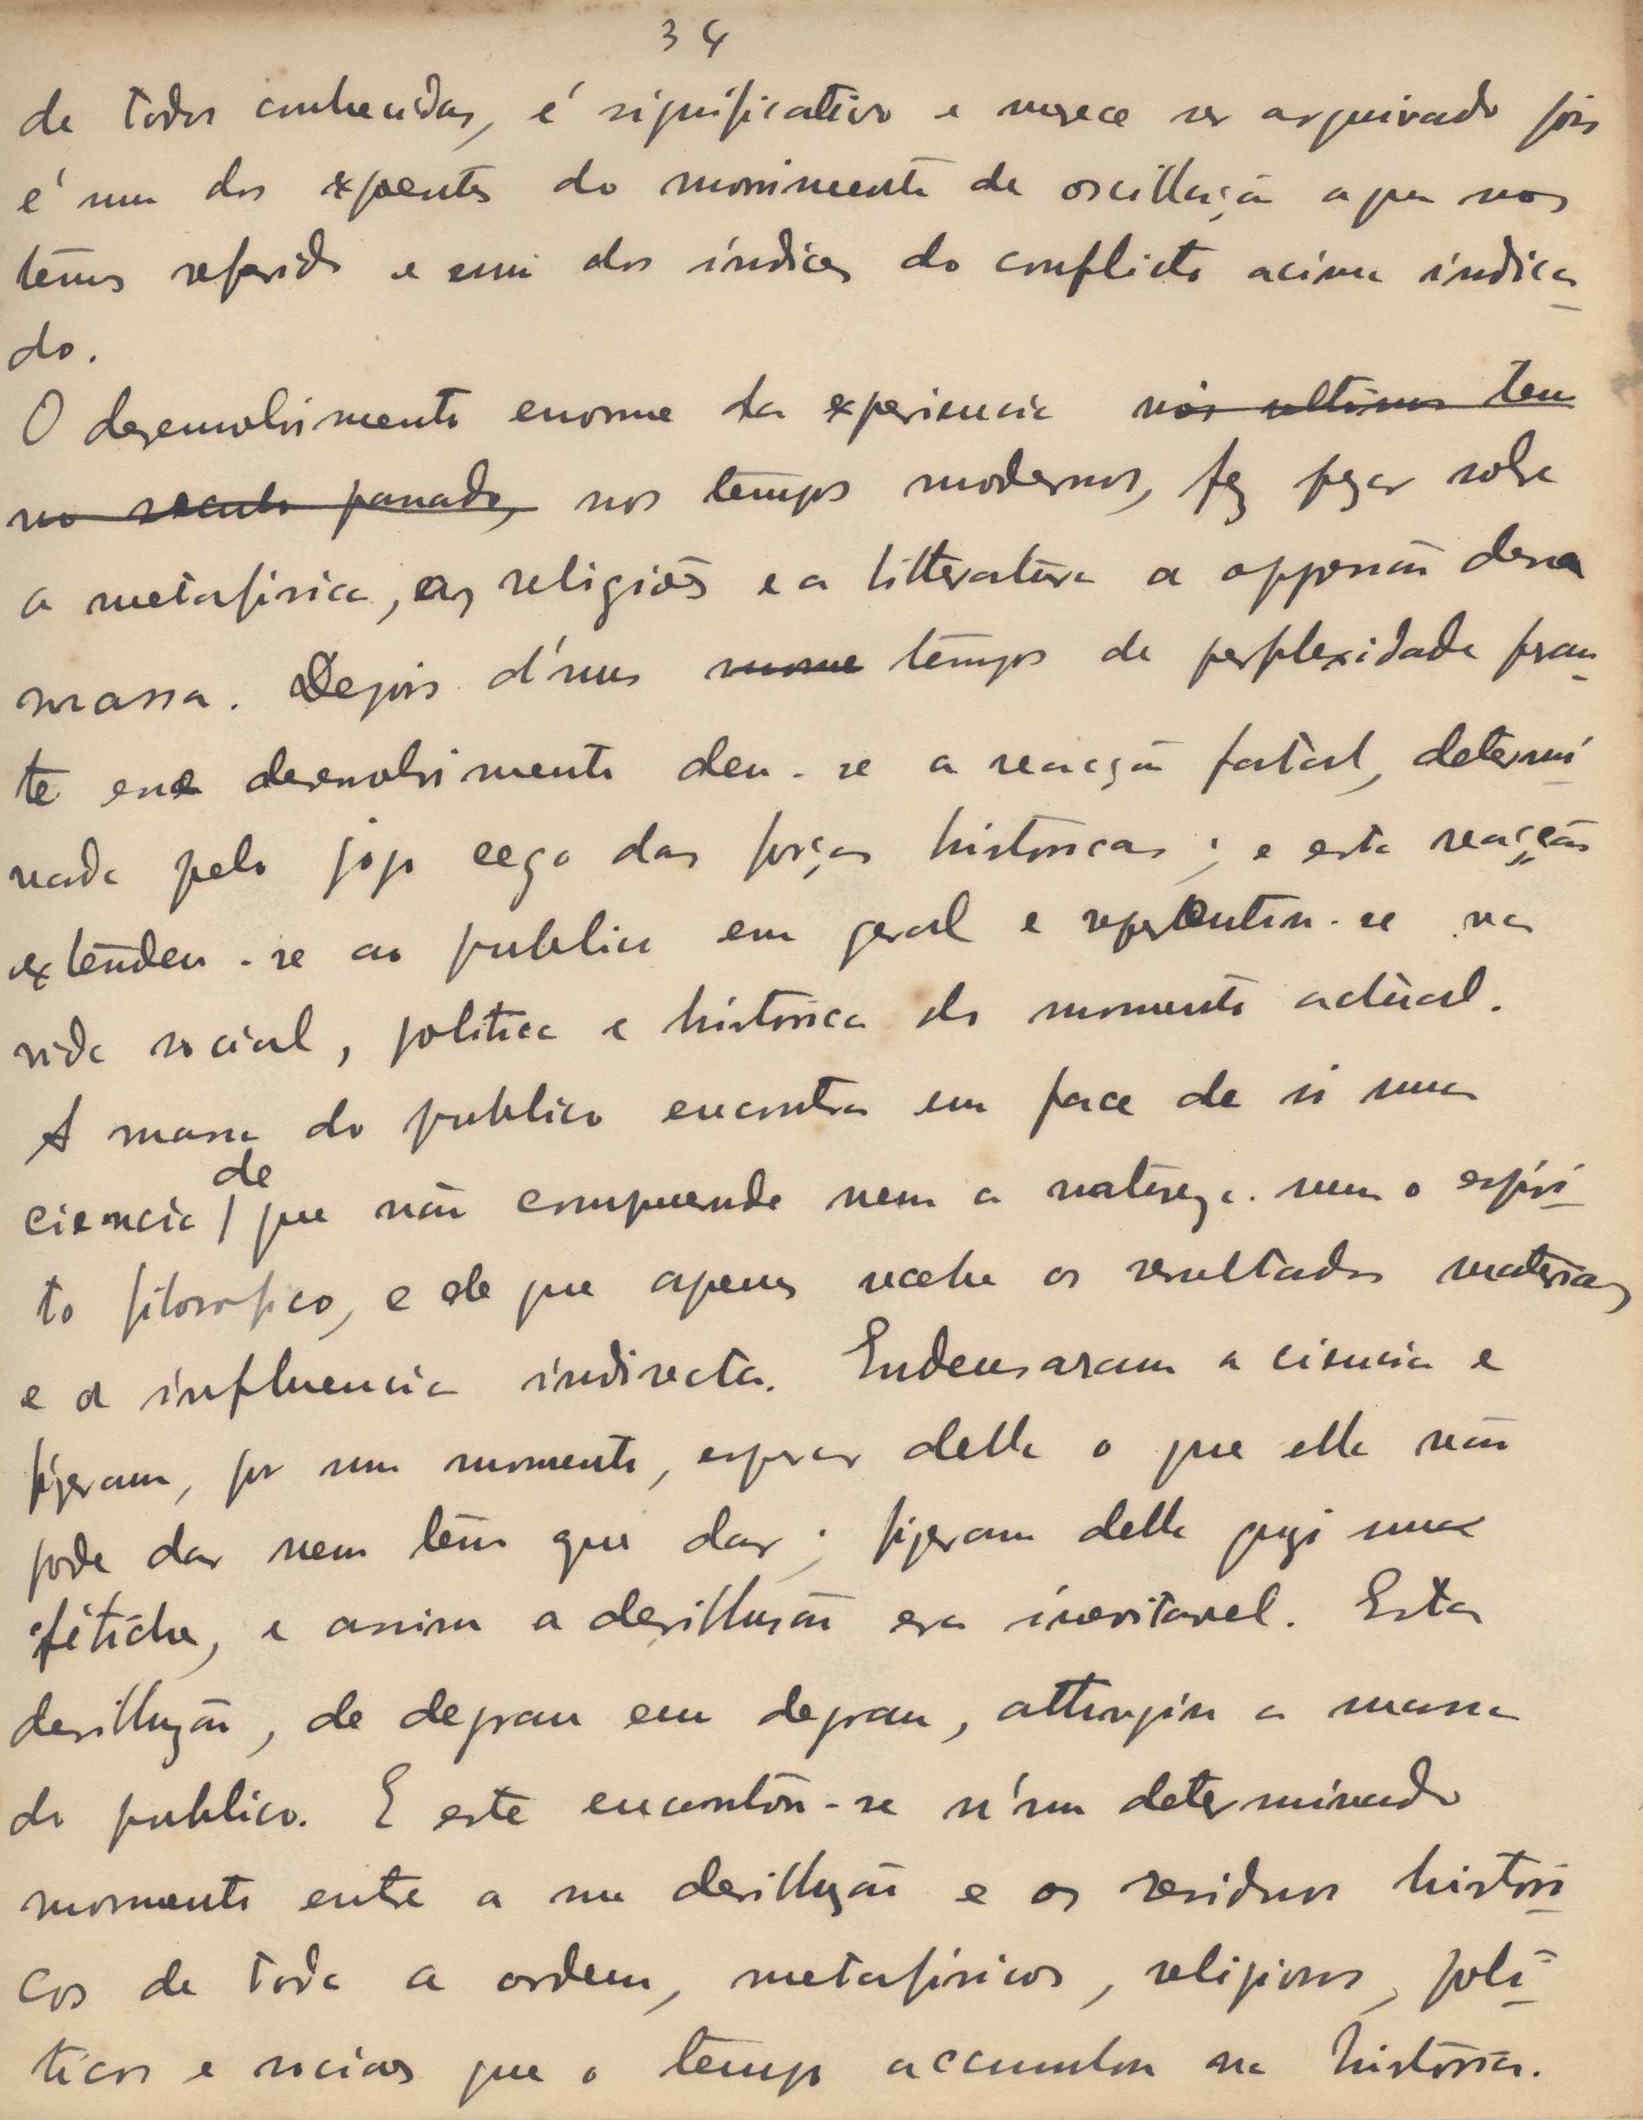 34
de todos conhecidas, é significativo e merece ser arquivado pois
é um dos expoentes do movimento de oscillação a que nos
temos referido e um dos índices do conflicto acima indica-
do.
O desenvolvimento enorme da experiencia nos ultimos tem
no seculo passado, nos tempos modernos, fez pezar sobre
a metafisica, as religiões e a litteratura a oppressão dessa
massa. Depois d'uns tempos de perplexidade peran-
te esse desenvolvimento deu-se a reacção fatal, determi-
nada pelo jogo cego das forças historicas; e esta reacção
extendeu-se ao publico em geral e repercutiu-se na
vida social, politica e historica do momento actual.
A massa do publico encontra em face de si uma
de
ciencia / que não comprehende nem a natureza nem o espiri-
to filosofico, e de que apenas recebe os resultados materiaes
e a influencia indirecta. Endeusaram a ciencia e
fizeram, por um momento, esperar della o que ella não
pode dar nem tem que dar; fizeram della quazi uma
fétiche, e assim a desillusão era inevitavel. Esta
desilluzão, de degrau em degrau, attingiu a massa
do publico. E este encontrou-se n'um determinado
momento entre a sua desilluzão e os residuos histori-
cos de toda a ordem, metafisicos, religiosos, poli-
ticos e sociaes que o tempo accumulou na historia.